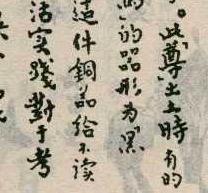 。此尊出土時有的
的器形为黑
這件銅器給不讀
活实践對于考